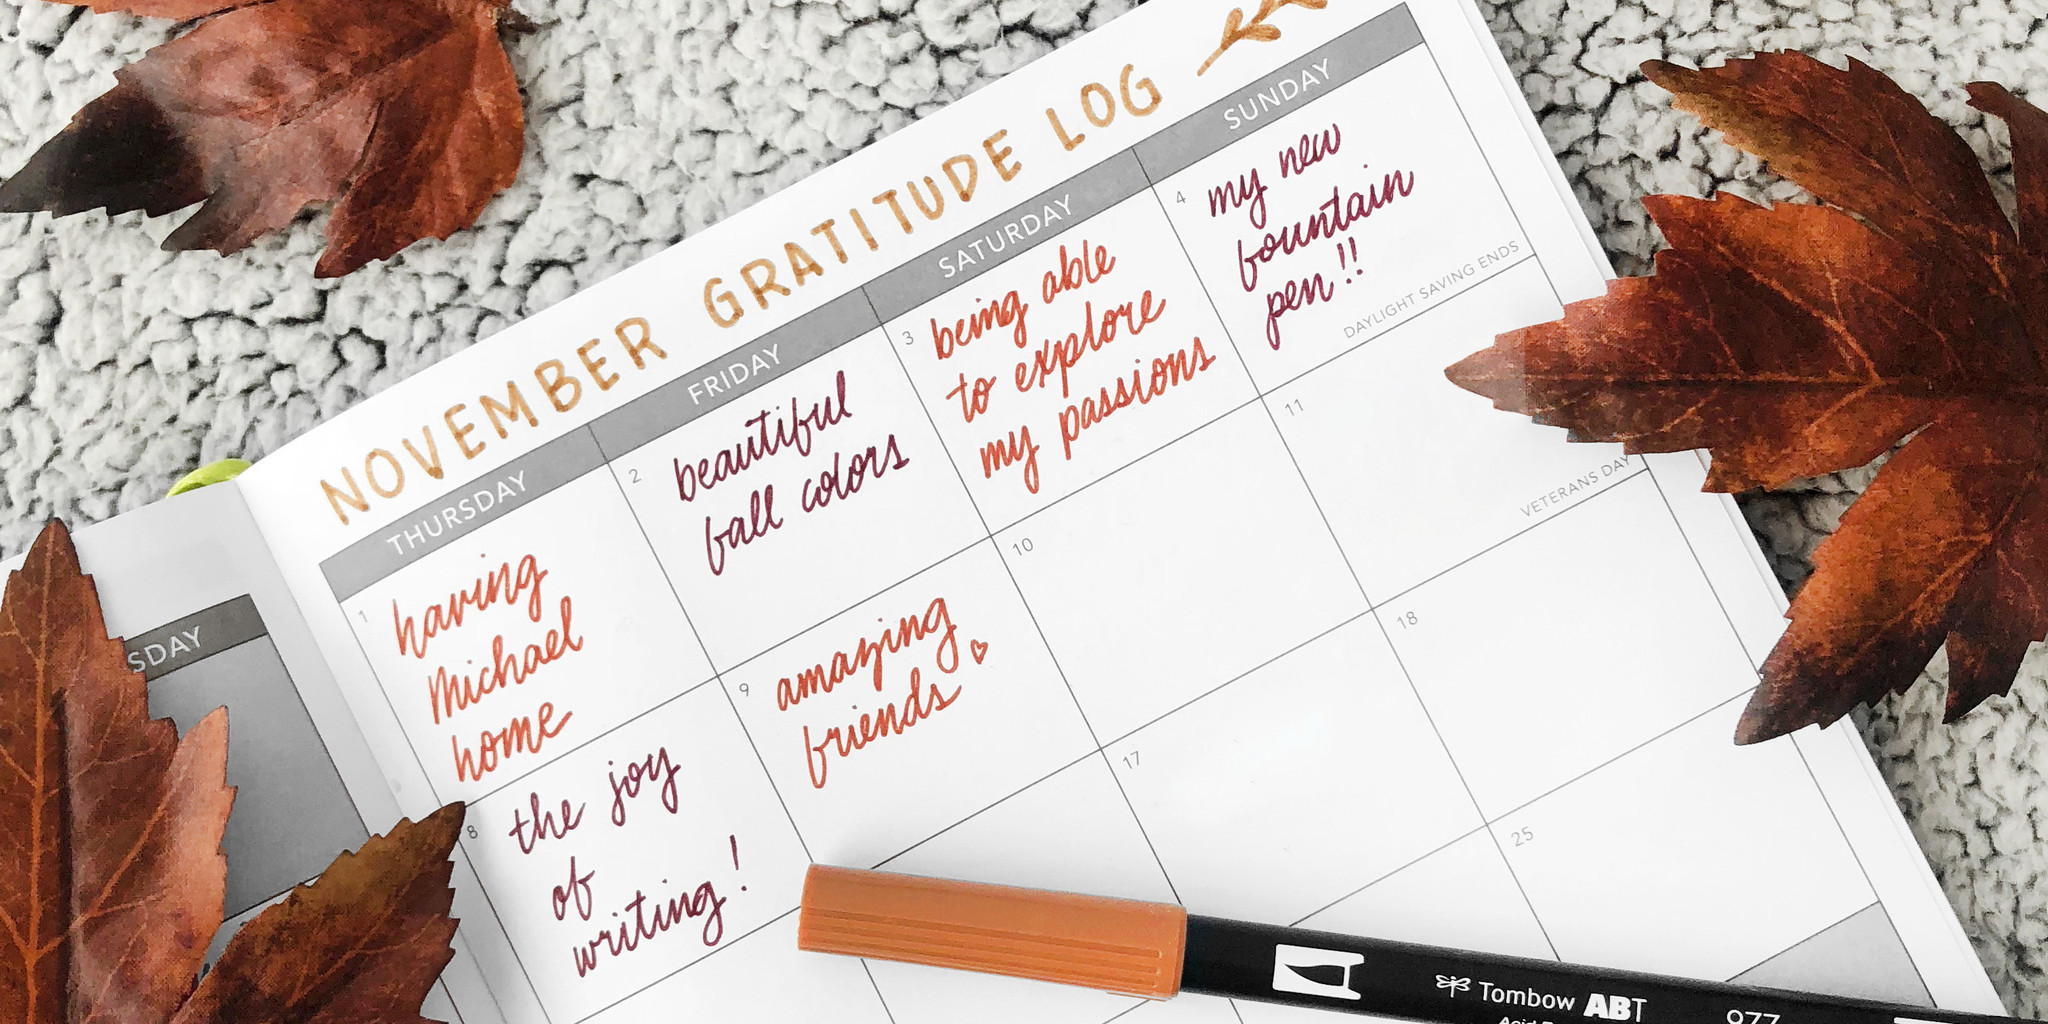 NOVEMBER GRATITUDE LOG
THURSDAY
FRIDAY
SATURDAY
SUNDAY
1
having
Michael
home
2
beautiful
fall colors
3
being able
to explore
my passions
4
my new
fountain
pen!!
DAYLIGHT SAVING ENDS
8
the joy
of
writing!
9
amazing
friends
10
11
VETERANS DAY
17
18
25
SDAY
Tombow ABT
977